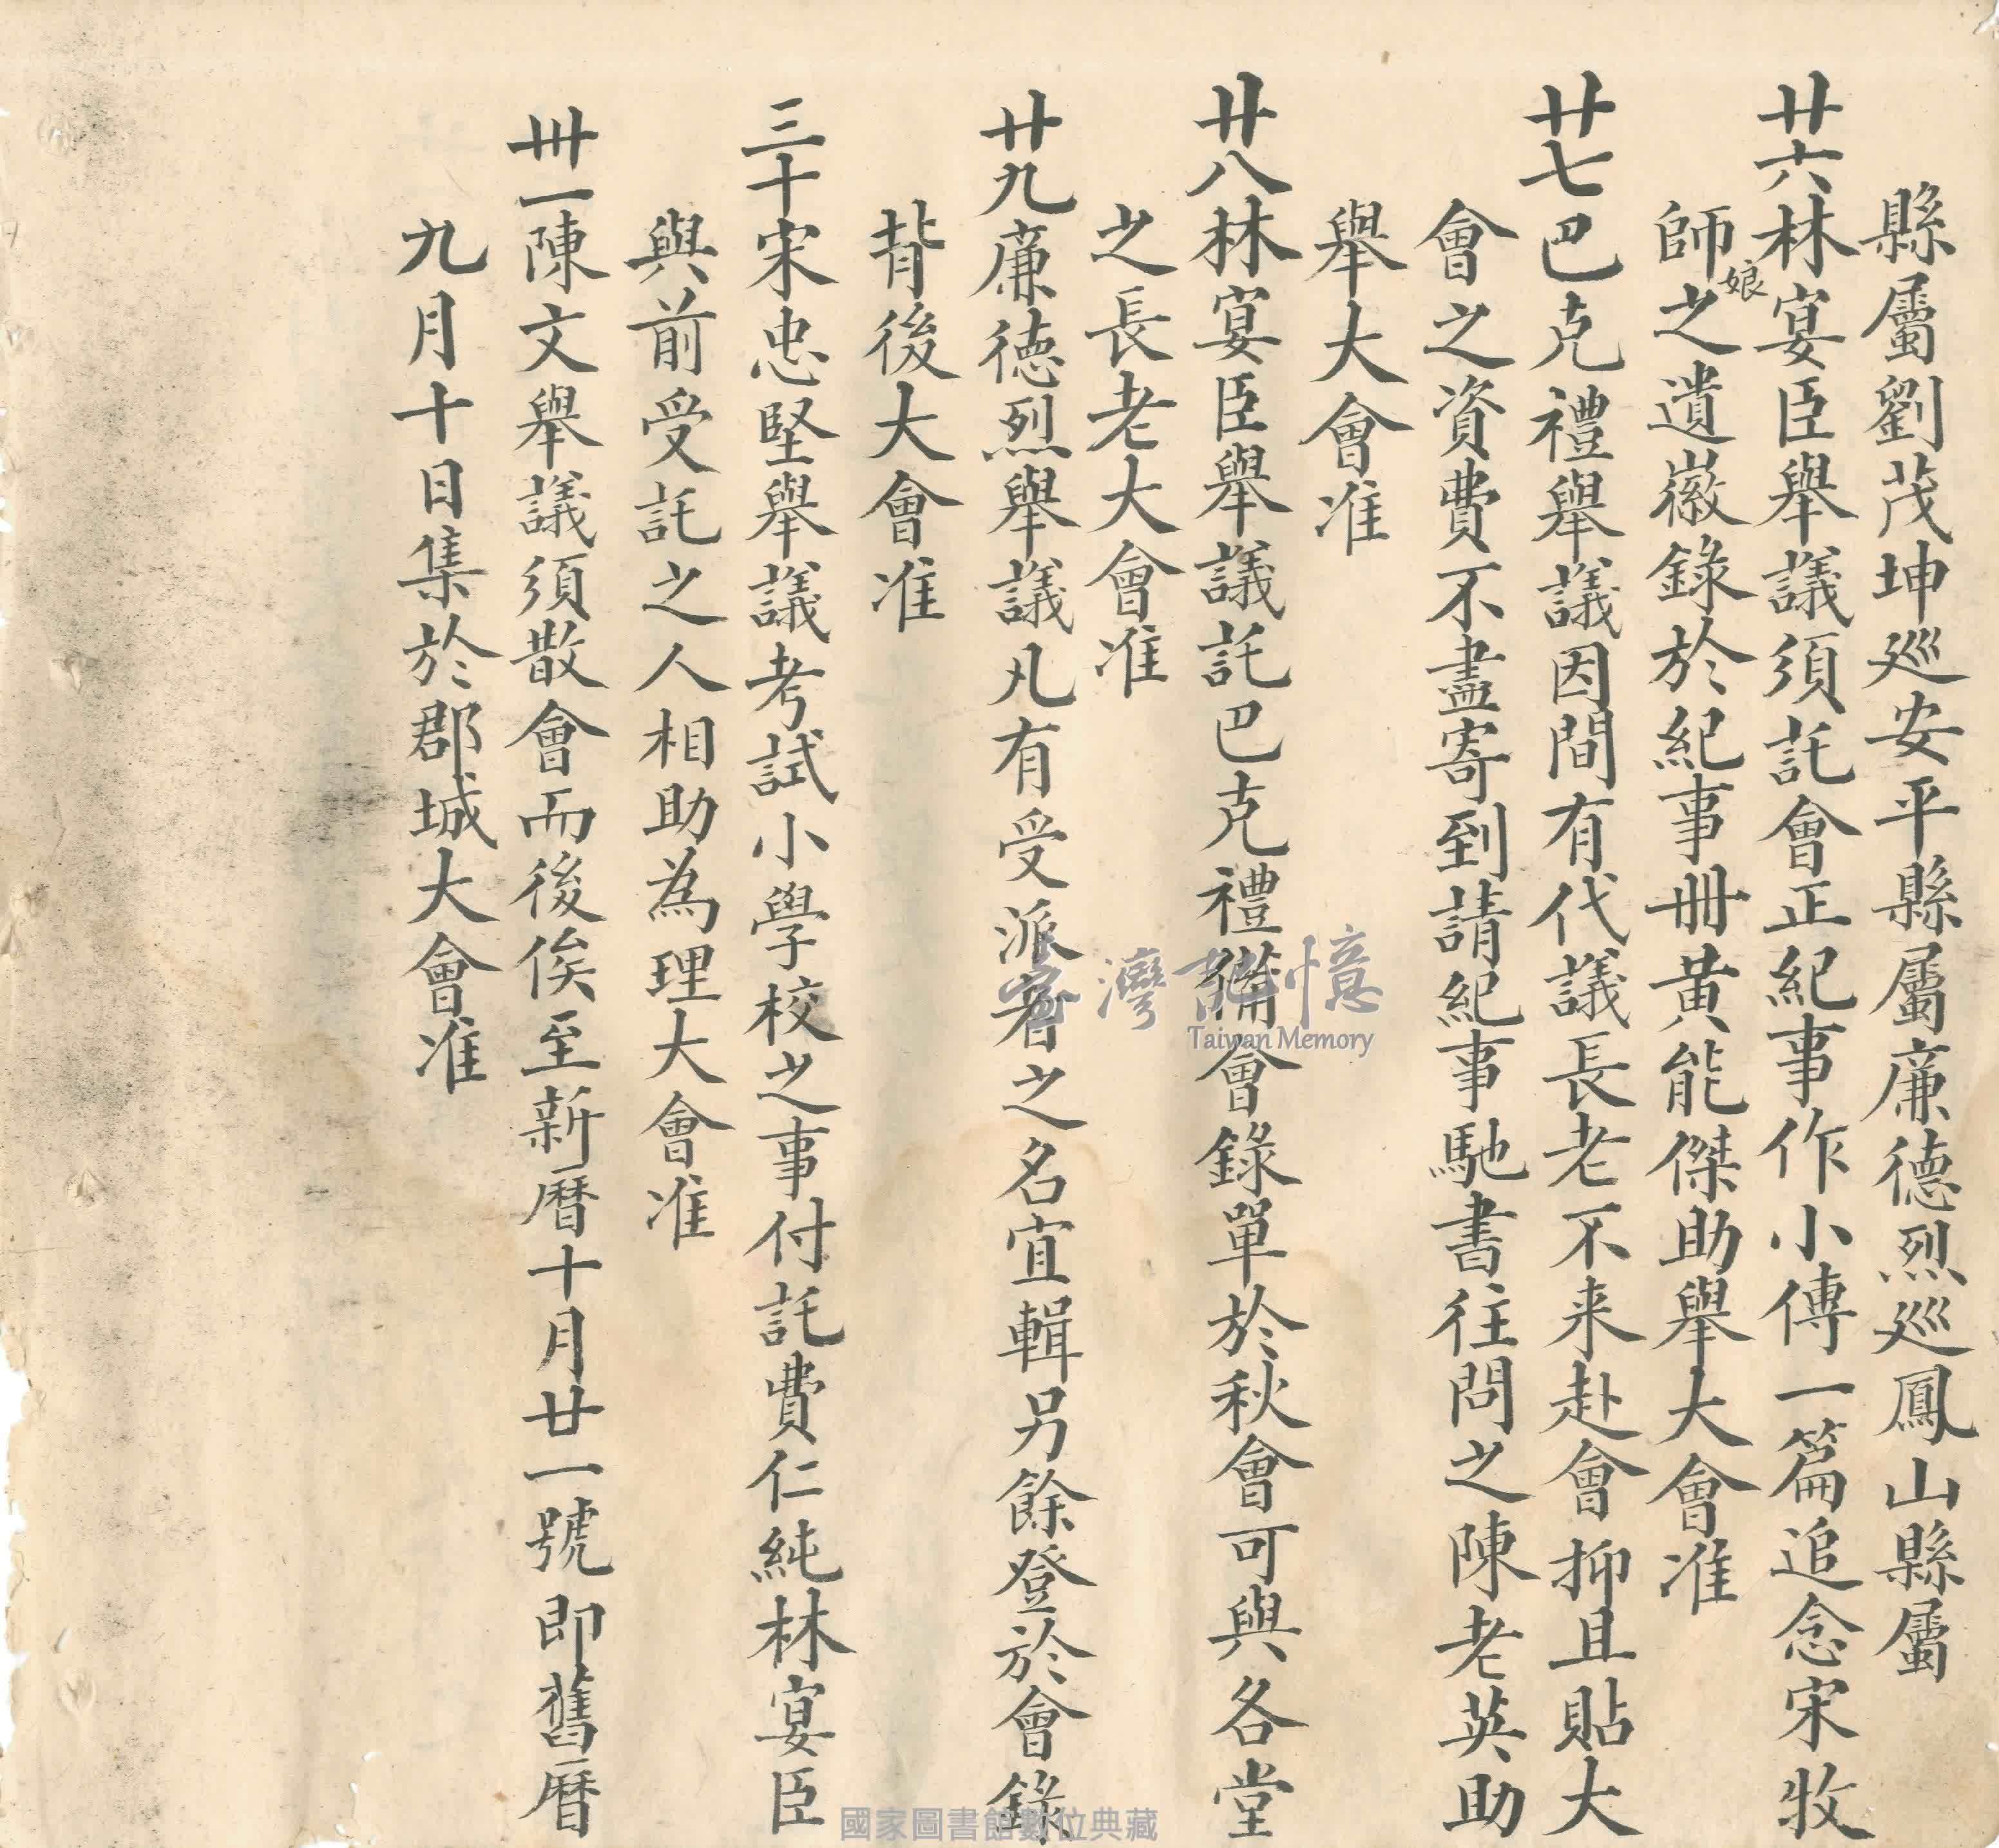 縣屬劉茂坤巡安平縣屬廉德烈巡鳳山縣屬
廿六林宴臣舉議須託會正紀事作小傳一篇追念宋牧
師娘之遺徽錄於紀事冊黃能傑助舉大會准
廿七巴克禮舉議因間有代議長老不来赴會抑且貼大
會之資費不盡寄到請紀事馳書往問之陳老英助
舉大會准
廿八林宴臣舉議託巴克禮備會錄單於秋會可與各堂
之長老大會准
廿九廉德烈舉議凡有受派者之名宜輯另餘登於會錄
背後大會准
三十宋忠堅舉議考試小學校之事付託費仁純林宴臣
與前受託之人相助為理大會准
卅一陳文舉議須散會而後俟至新曆十月廿一號即舊曆
九月十日集於郡城大會准
臺灣記憶
Taiwan Memory
國家圖書館數位典藏